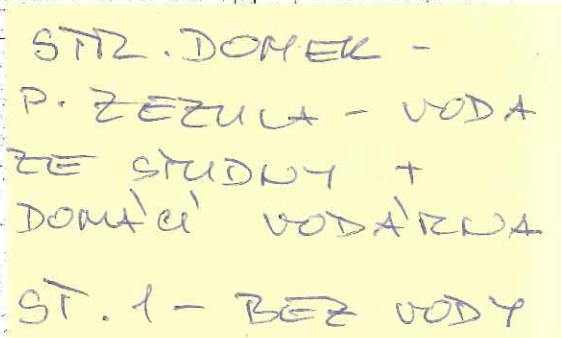 STR. DOMEK -
P. ZEZULA - VODA
ZE STUDNY +
DOMÁCÍ VODÁRNA
ST. 1 - BEZ VODY